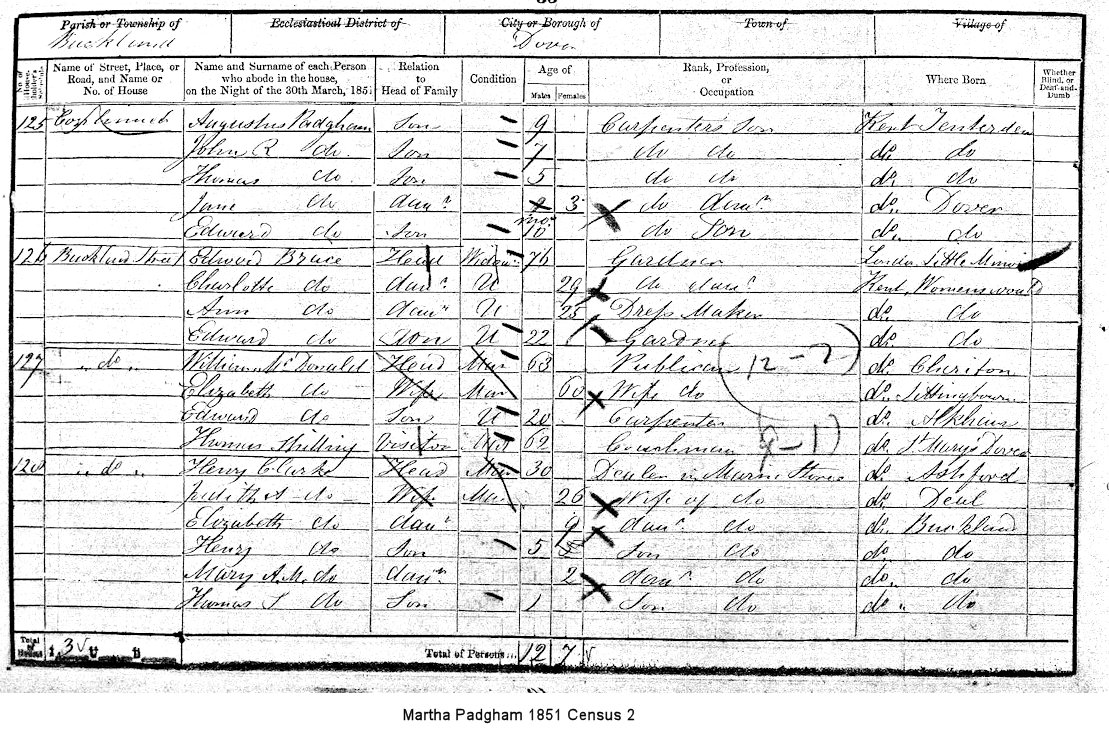 Parish or Township of Ecclesiastical District of City or Borough of Town of Village of
Buckland Dover
Name of Street, Place, or Road, and Name or No. of House Name and Surname of each Person who abode in the house, on the Night of the 30th March, 1851 Relation to Head of Family Condition Age of Males Females Rank, Profession, or Occupation Where Born Whether Blind, or Deaf-and-Dumb
125 Augustus Padgham Son 9 Carpenters Son Kent Tenterden
John R do Son 7 do do do do
Thomas do Son 5 do do do do
Jane do daur 3 do daur do Dover
Edward do Son mos 10 do Son do do
126 Buckland Street Edward Bruce Head Widowr 76 Gardner London Little
Charlotte do daur U 29 do daur Kent, Womenswould
Ann do daur U 25 Dress Maker do do
Edward do Son U 22 Gardner do do
127 do William Mc Donald Head Mar 63 Publican do Cheriton
12 - 7
Elizabeth do Wife Mar 60 Wife do do Sittingbourne
Edward do Son U 20 Carpenter do Alkham
Thomas Shilling Visitor 62 Coachman do St Mary's Dover
9 - 1
128 do Henry Clarke Head Mar 30 Dealer in Marine Stores do Ashford
Judith A do Wife Mar 26 Wife of do do Deal
Elizabeth do daur 9 daur do do Buckland
Henry do Son 5 Son do do do
Mary A. M. do daur 2 daur do do do
Thomas S do Son 1 Son do do do
Total of Houses I 3 U B Total of Persons... 12 7
Martha Padgham 1851 Census 2